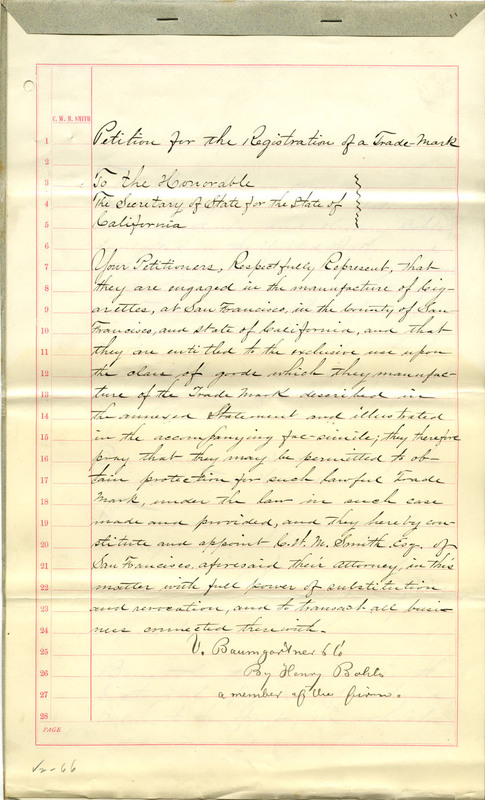 C. M. M. SMITH
1 Petition for the Registration of a Trade Mark
2
3 To the Honorable
4 The Secretary of State for the State of
5 California
6
7 Your Petitioners, Respectfully Represent, that
8 they are engaged in the manufacture of Cig-
9 arettes, at San Francisco, in the County of San
10 Francisco, and State of California, and that
11 they are entitled to the exclusive use upon
12 the class of goods which they manufac-
13 ture of the Trade Mark described in
14 the annexed Statement and illustrated
15 in the accompanying fac-simile; they therefore
16 pray that they may be permitted to ob-
17 tain protection for such lawful Trade
18 Mark, under the law in such case
19 made and provided, and they hereby con-
20 stitute and appoint C. W. M. Smith Esq. of
21 San Francisco, aforesaid their attorney, in this
22 matter with full power of substitution
23 and revocation, and to transact all busi-
24 ness connected therewith.
25 V. Baumgardner & Co
26 By Henry Bohls
27 a member of the firm.
28
PAGE